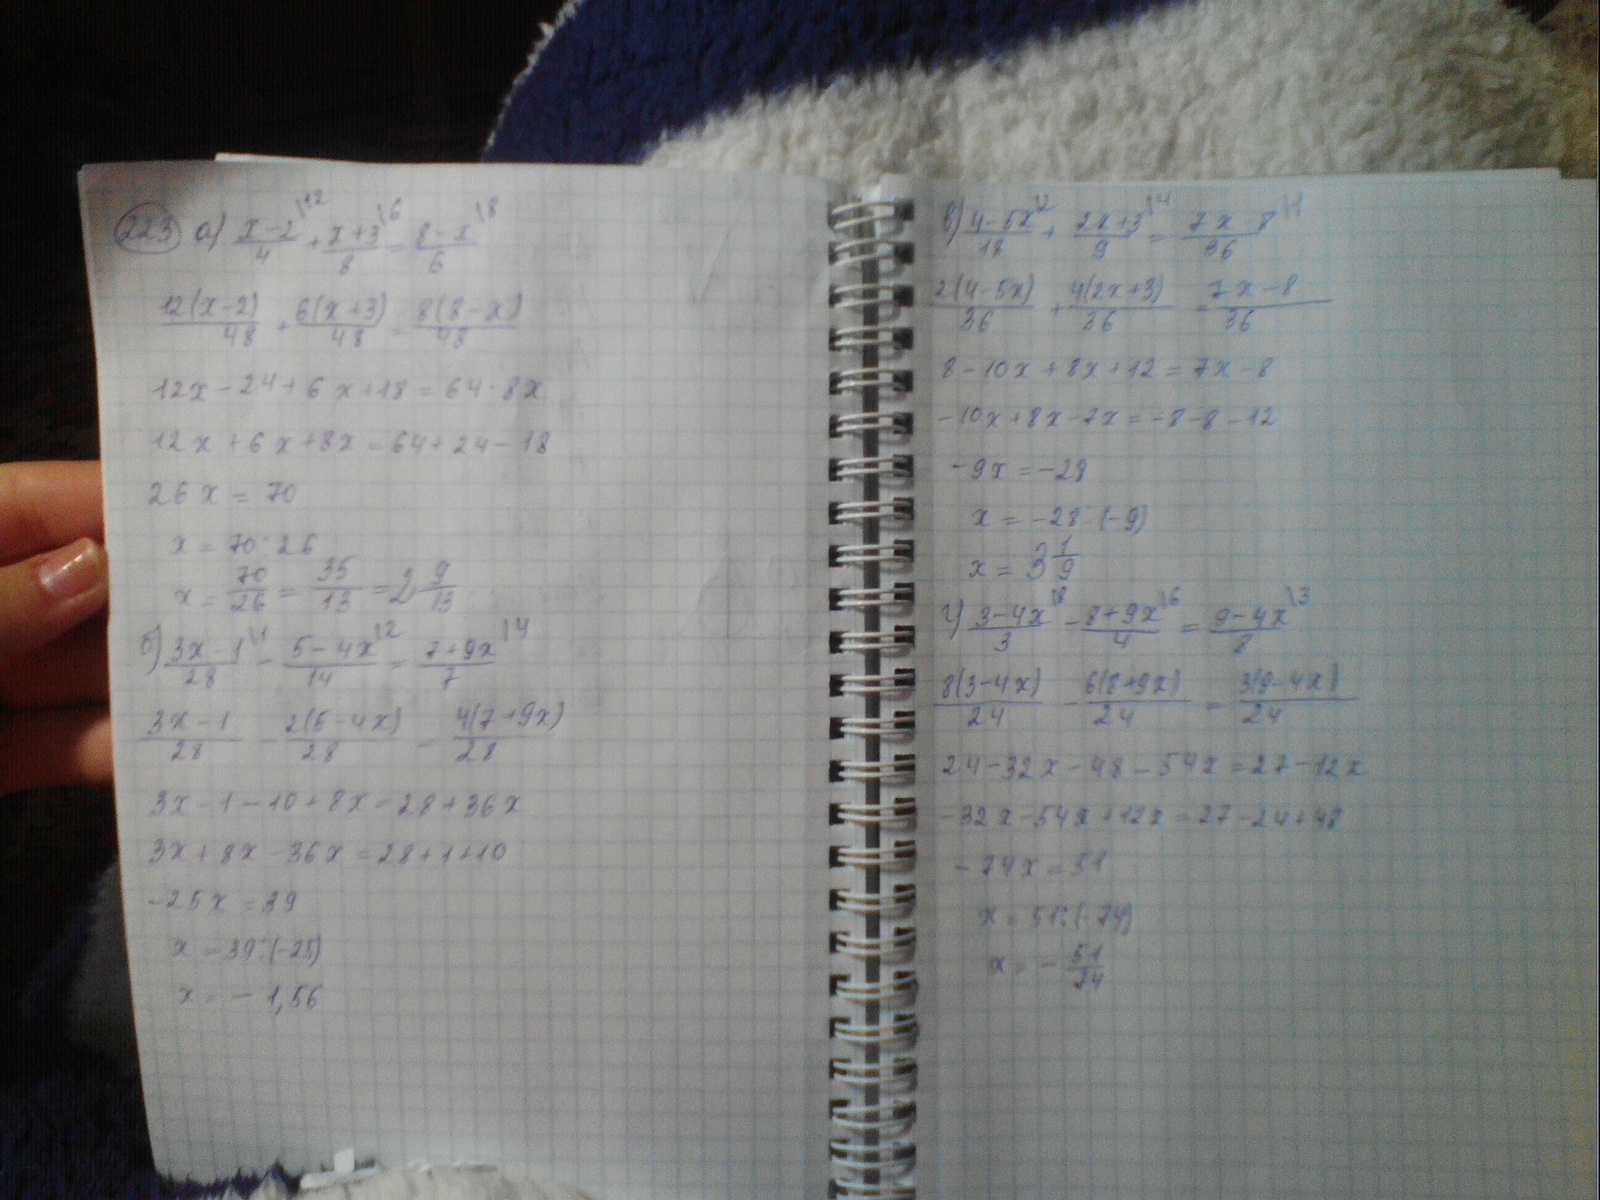 223 а) (x-2)/4 \12 + (x+3)/8 \6 = (8-x)/6 \8
12(x-2)/48 + 6(x+3)/48 = 8(8-x)/48
12x-24+6x+18=64-8x
12x+6x+8x=64+24-18
26x=70
x=70:26
x=70/26=35/13=2 9/13
б) (3x-1)/28 \1 - (5-4x)/14 \2 = (7+9x)/7 \4
(3x-1)/28 - 2(5-4x)/28 = 4(7+9x)/28
3x-1-10+8x=28+36x
3x+8x-36x=28+1+10
-25x=39
x=39:(-25)
x=-1,56
в) (4-5x)/18 \2 + (2x+3)/9 \4 = (7x-8)/36 \1
2(4-5x)/36 + 4(2x+3)/36 = (7x-8)/36
8-10x+8x+12=7x-8
-10x+8x-7x=-8-8-12
-9x=-28
x=-28:(-9)
x=3 1/9
г) (3-4x)/3 \8 - (8+9x)/4 \6 = (9-4x)/8 \3
8(3-4x)/24 - 6(8+9x)/24 = 3(9-4x)/24
24-32x-48-54x=27-12x
-32x-54x+12x=27-24+48
-74x=51
x=51:(-74)
x=-51/24